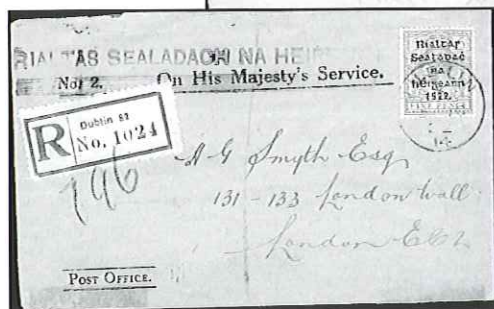 RIALTAS SEALADACH NA HEIR
No. 2. On His Majesty's Service.
Rialtas
Sealadaċ
na
hÉireann
1922.
FIVE PENCE
R
Dublin 62
No. 1024
196
A G Smyth Esq
131 - 133 London Wall
London
POST OFFICE.